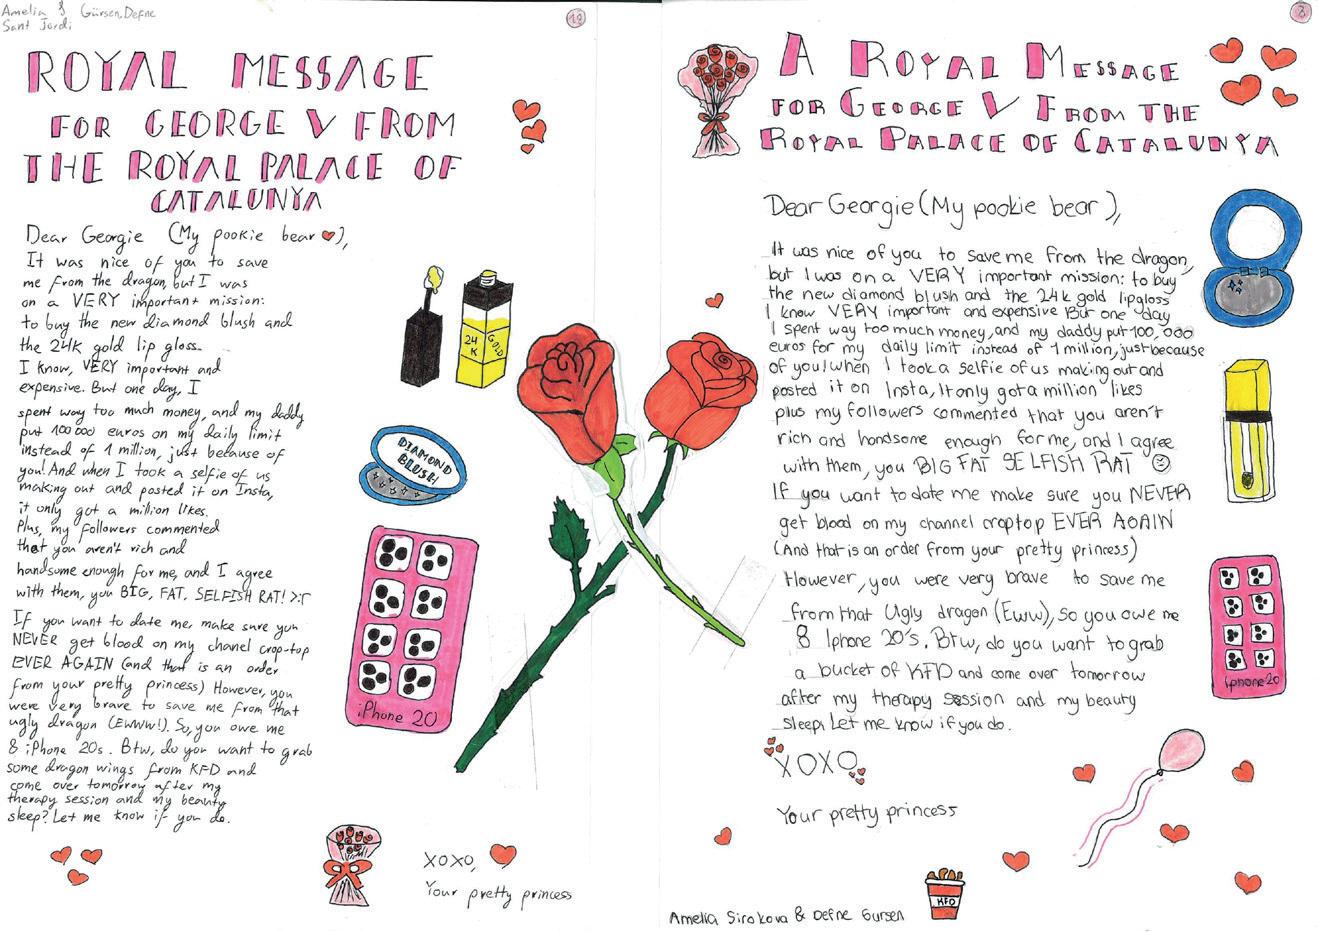 Amelia & Gürsen, Defne
Sant Jordi
12
ROYAL MESSAGE
FOR GEORGE V FROM
THE ROYAL PALACE OF
CATALUNYA
Dear Georgie (My pookie bear ♥),
It was nice of you to save
me from the dragon, but I was
on a VERY important mission:
to buy the new diamond blush and
the 24K gold lip gloss.
I know, VERY important and
expensive. But one day, I
spent way too much money, and my daddy
put 100 000 euros on my daily limit
instead of 1 million, just because of
you! And when I took a selfie of us
making out and posted it on Insta,
it only got a million likes.
Plus, my followers commented
that you aren't rich and
handsome enough for me, and I agree
with them, you BIG, FAT, SELFISH RAT! >:(
If you want to date me, make sure you
NEVER get blood on my chanel crop-top
EVER AGAIN (and that is an order
from your pretty princess) However, you
were very brave to save me from that
ugly dragon (EWWW!). So, you owe me
8 iPhone 20s. Btw, do you want to grab
some dragon wings from KFD and
come over tomorrow after my
therapy session and my beauty
sleep? Let me know if you do.
XOXO,
Your pretty princess
24
K
GOLD
DIAMOND
BLUSH
iPhone 20
8
A ROYAL MESSAGE
FOR GEORGE V FROM THE
ROYAL PALACE OF CATALUNYA
Dear Georgie (My pookie bear),
It was nice of you to save me from the dragon,
but I was on a VERY important mission: to buy
the new diamond blush and the 24k gold lipgloss
I know VERY important and expensive But one day
I spent way too much money, and my daddy put 100,000
euros for my daily limit instead of 1 million, just because
of you! when I took a selfie of us making out and
posted it on Insta, It only got a million likes
plus my followers commented that you aren't
rich and handsome enough for me, and I agree
with them, you BIG FAT SELFISH RAT ☹
If you want to date me make sure you NEVER
get blood on my channel croptop EVER AGAIN
(And that is an order from your pretty princess)
However, you were very brave to save me
from that Ugly dragon (Eww), so you owe me
8 Iphone 20's. Btw, do you want to grab
a bucket of KFD and come over tomorrow
after my therapy session and my beauty
sleep. Let me know if you do.
XOXO
Your pretty princess
Iphone 20
KFD
Amelia Sirakova & Defne Gursen